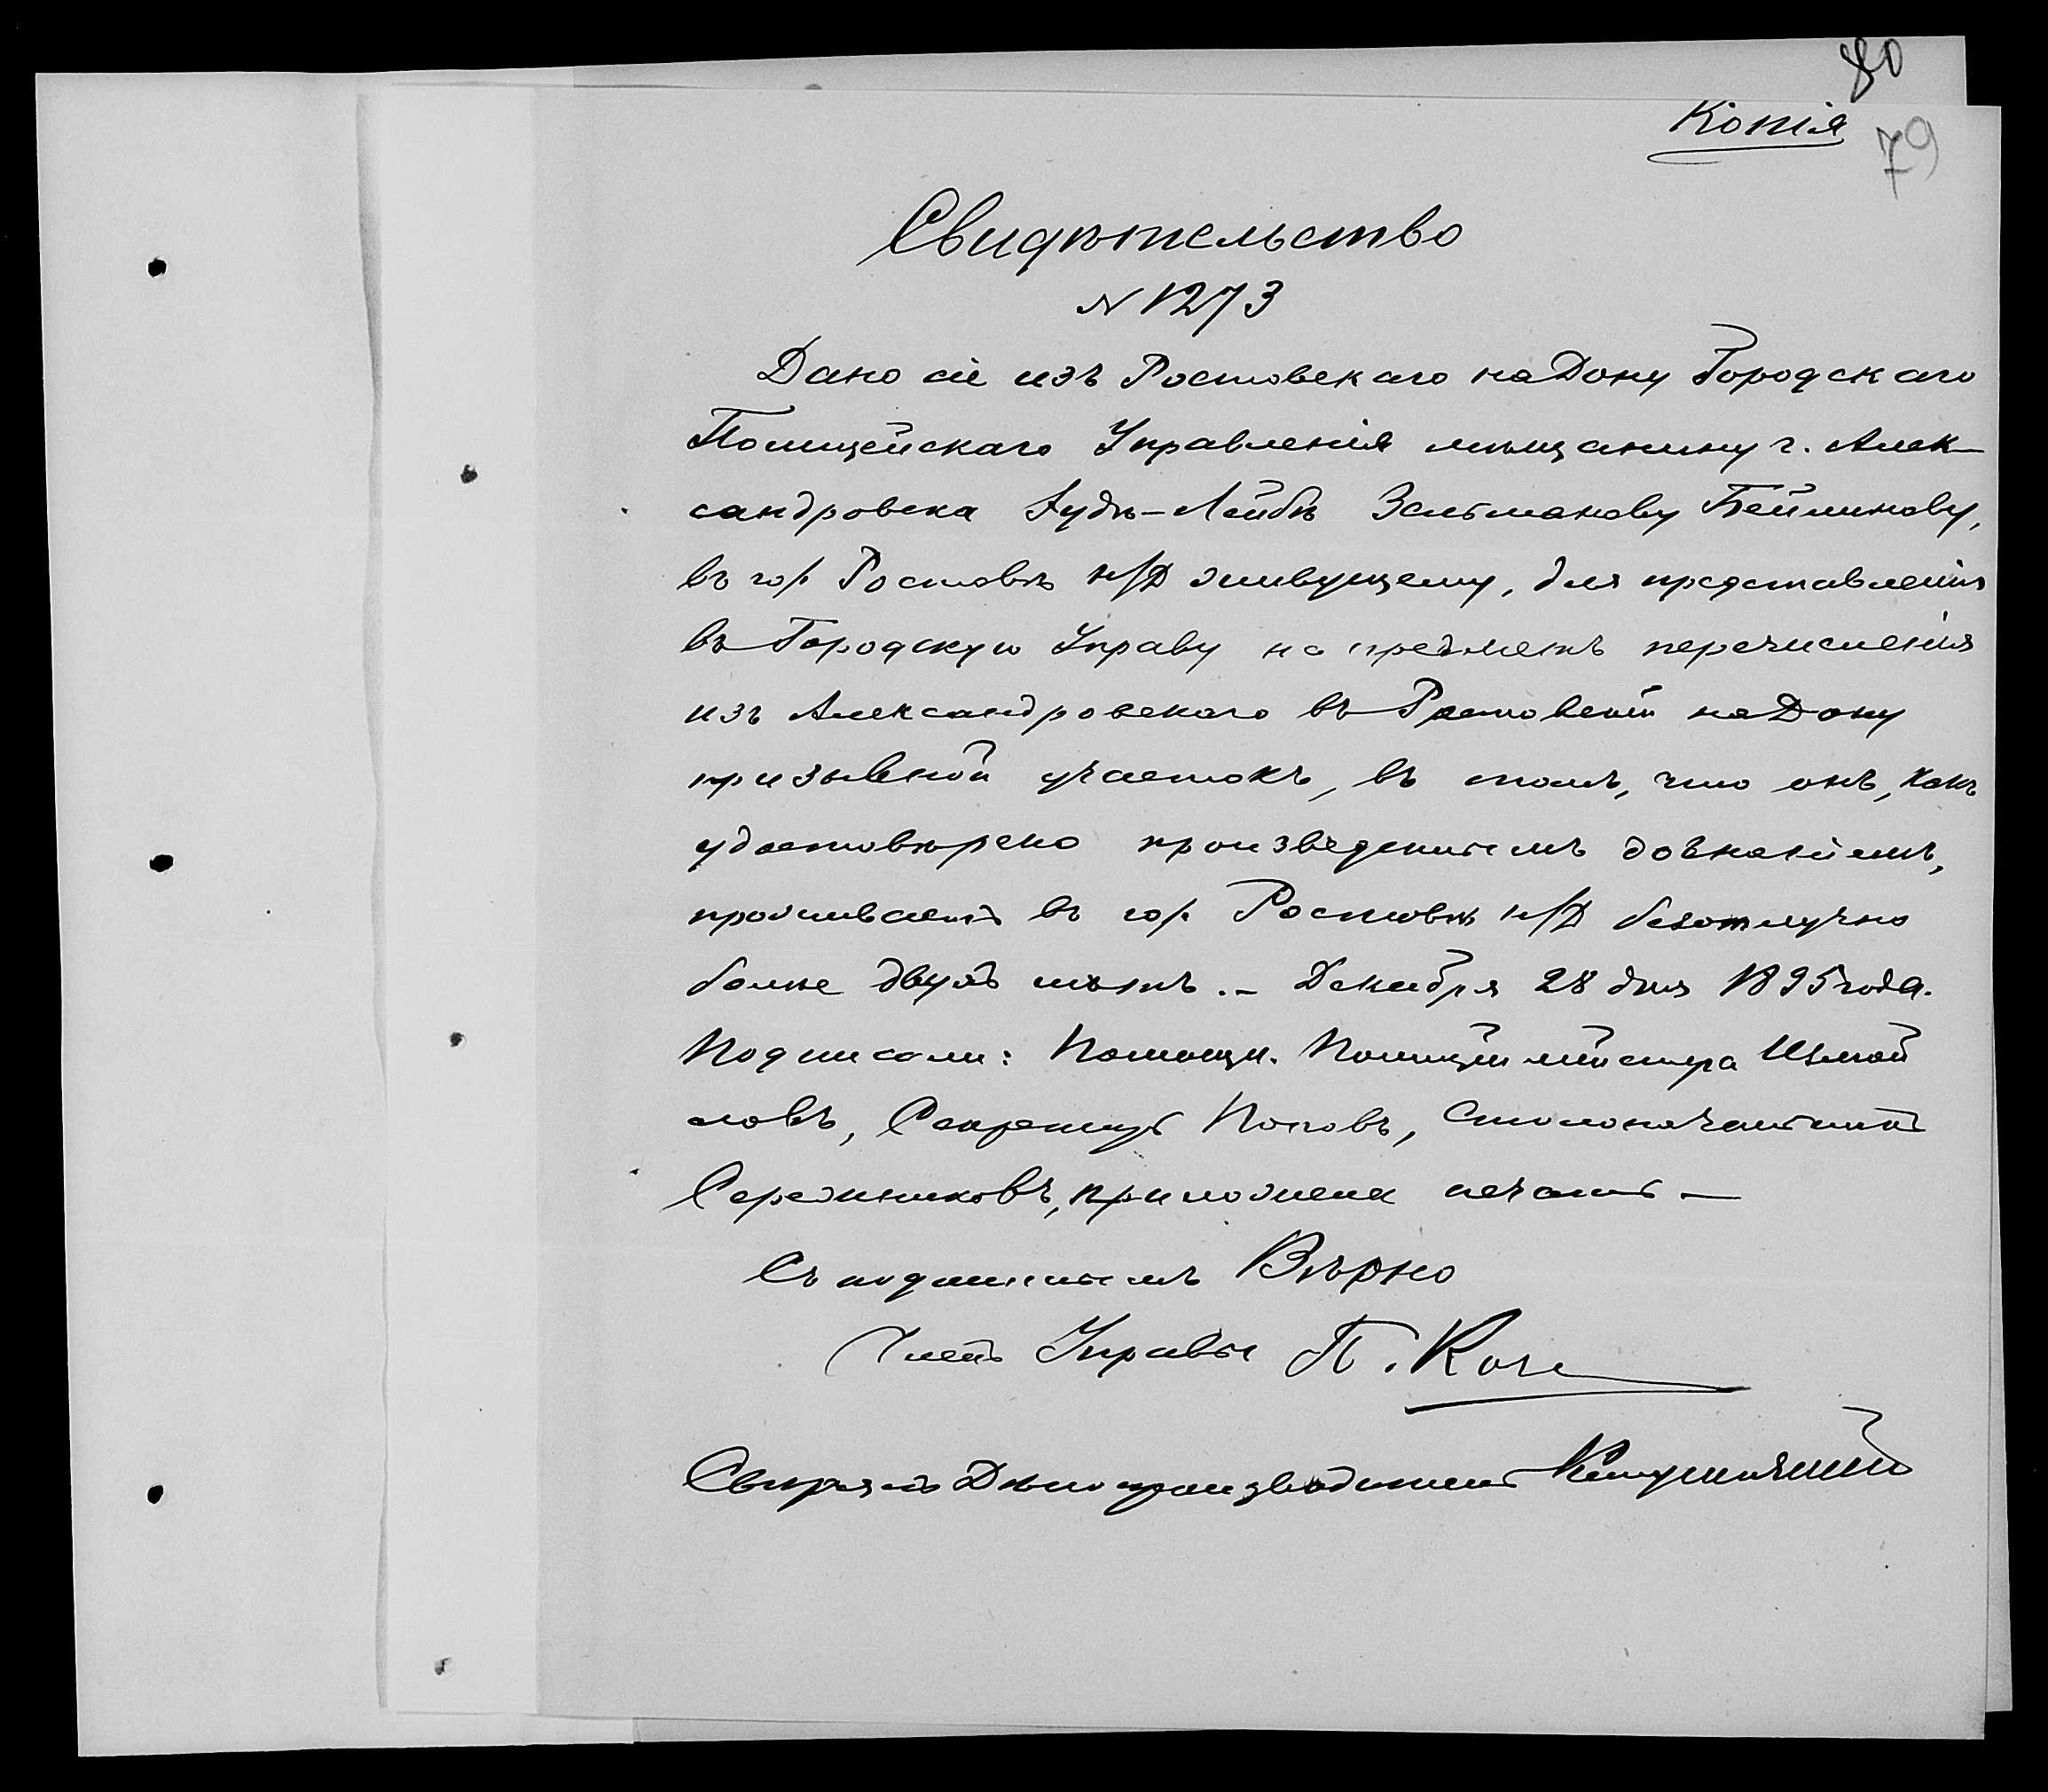 80
Копія
79
Свидѣтельство
№ 1273
Дано сіе изъ Ростовскаго на Дону Городскаго
Полицейскаго Управленія мѣщанину г. Алек-
сандровска Іудѣ-Лейбѣ Зельманову Бейлинову,
въ гор. Ростовѣ н/Д живущему, для представленія
въ Городскую Управу на предметъ перечисленія
изъ Александровскаго въ Ростовскій на Дону
призывной участокъ, въ томъ, что онъ, какъ
удостовѣрено произведеннымъ дознаніемъ,
проживаетъ въ гор. Ростовѣ н/Д безотлучно
болѣе двухъ лѣтъ. – Декабря 28 дня 1895 года.
Подписали: Помощн. Полиціймейстера Измай
ловъ, Секретарь Поповъ, Столоначальникъ
Сережниковъ, приложена печать –
Съ подлиннымъ Вѣрно
Членъ Управы П.
Свѣрялъ Дѣлопроизводитель